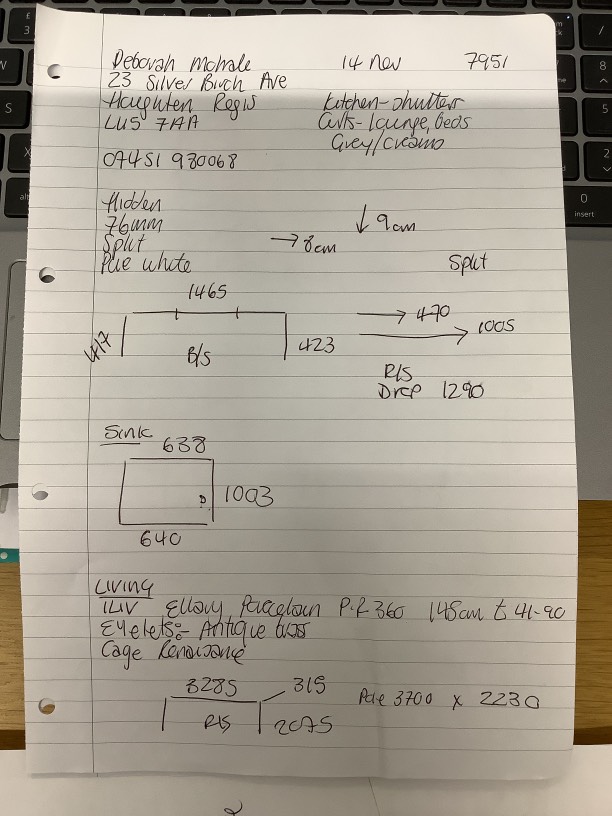 Deborah McHale 14 Nov 7951
23 Silver Birch Ave
Haughten Regis Kitchen-shutters
LU5 7AA Curts-lounge, beds
Grey/creams
07451 980068
Hidden
76mm ↓ 9cm
Split → 8cm
Pure white Split
1465
→ 470
→ 1005
417 B/S 423
R/S
Drop 1290
Sink
638
1003
640
Living
ILIV Porcelain P.R 360 148cm £ 41-90
Eyelets:- Antique
Cage Renaissance
3285 315
Pole 3700 x 2230
R/S 2075
2